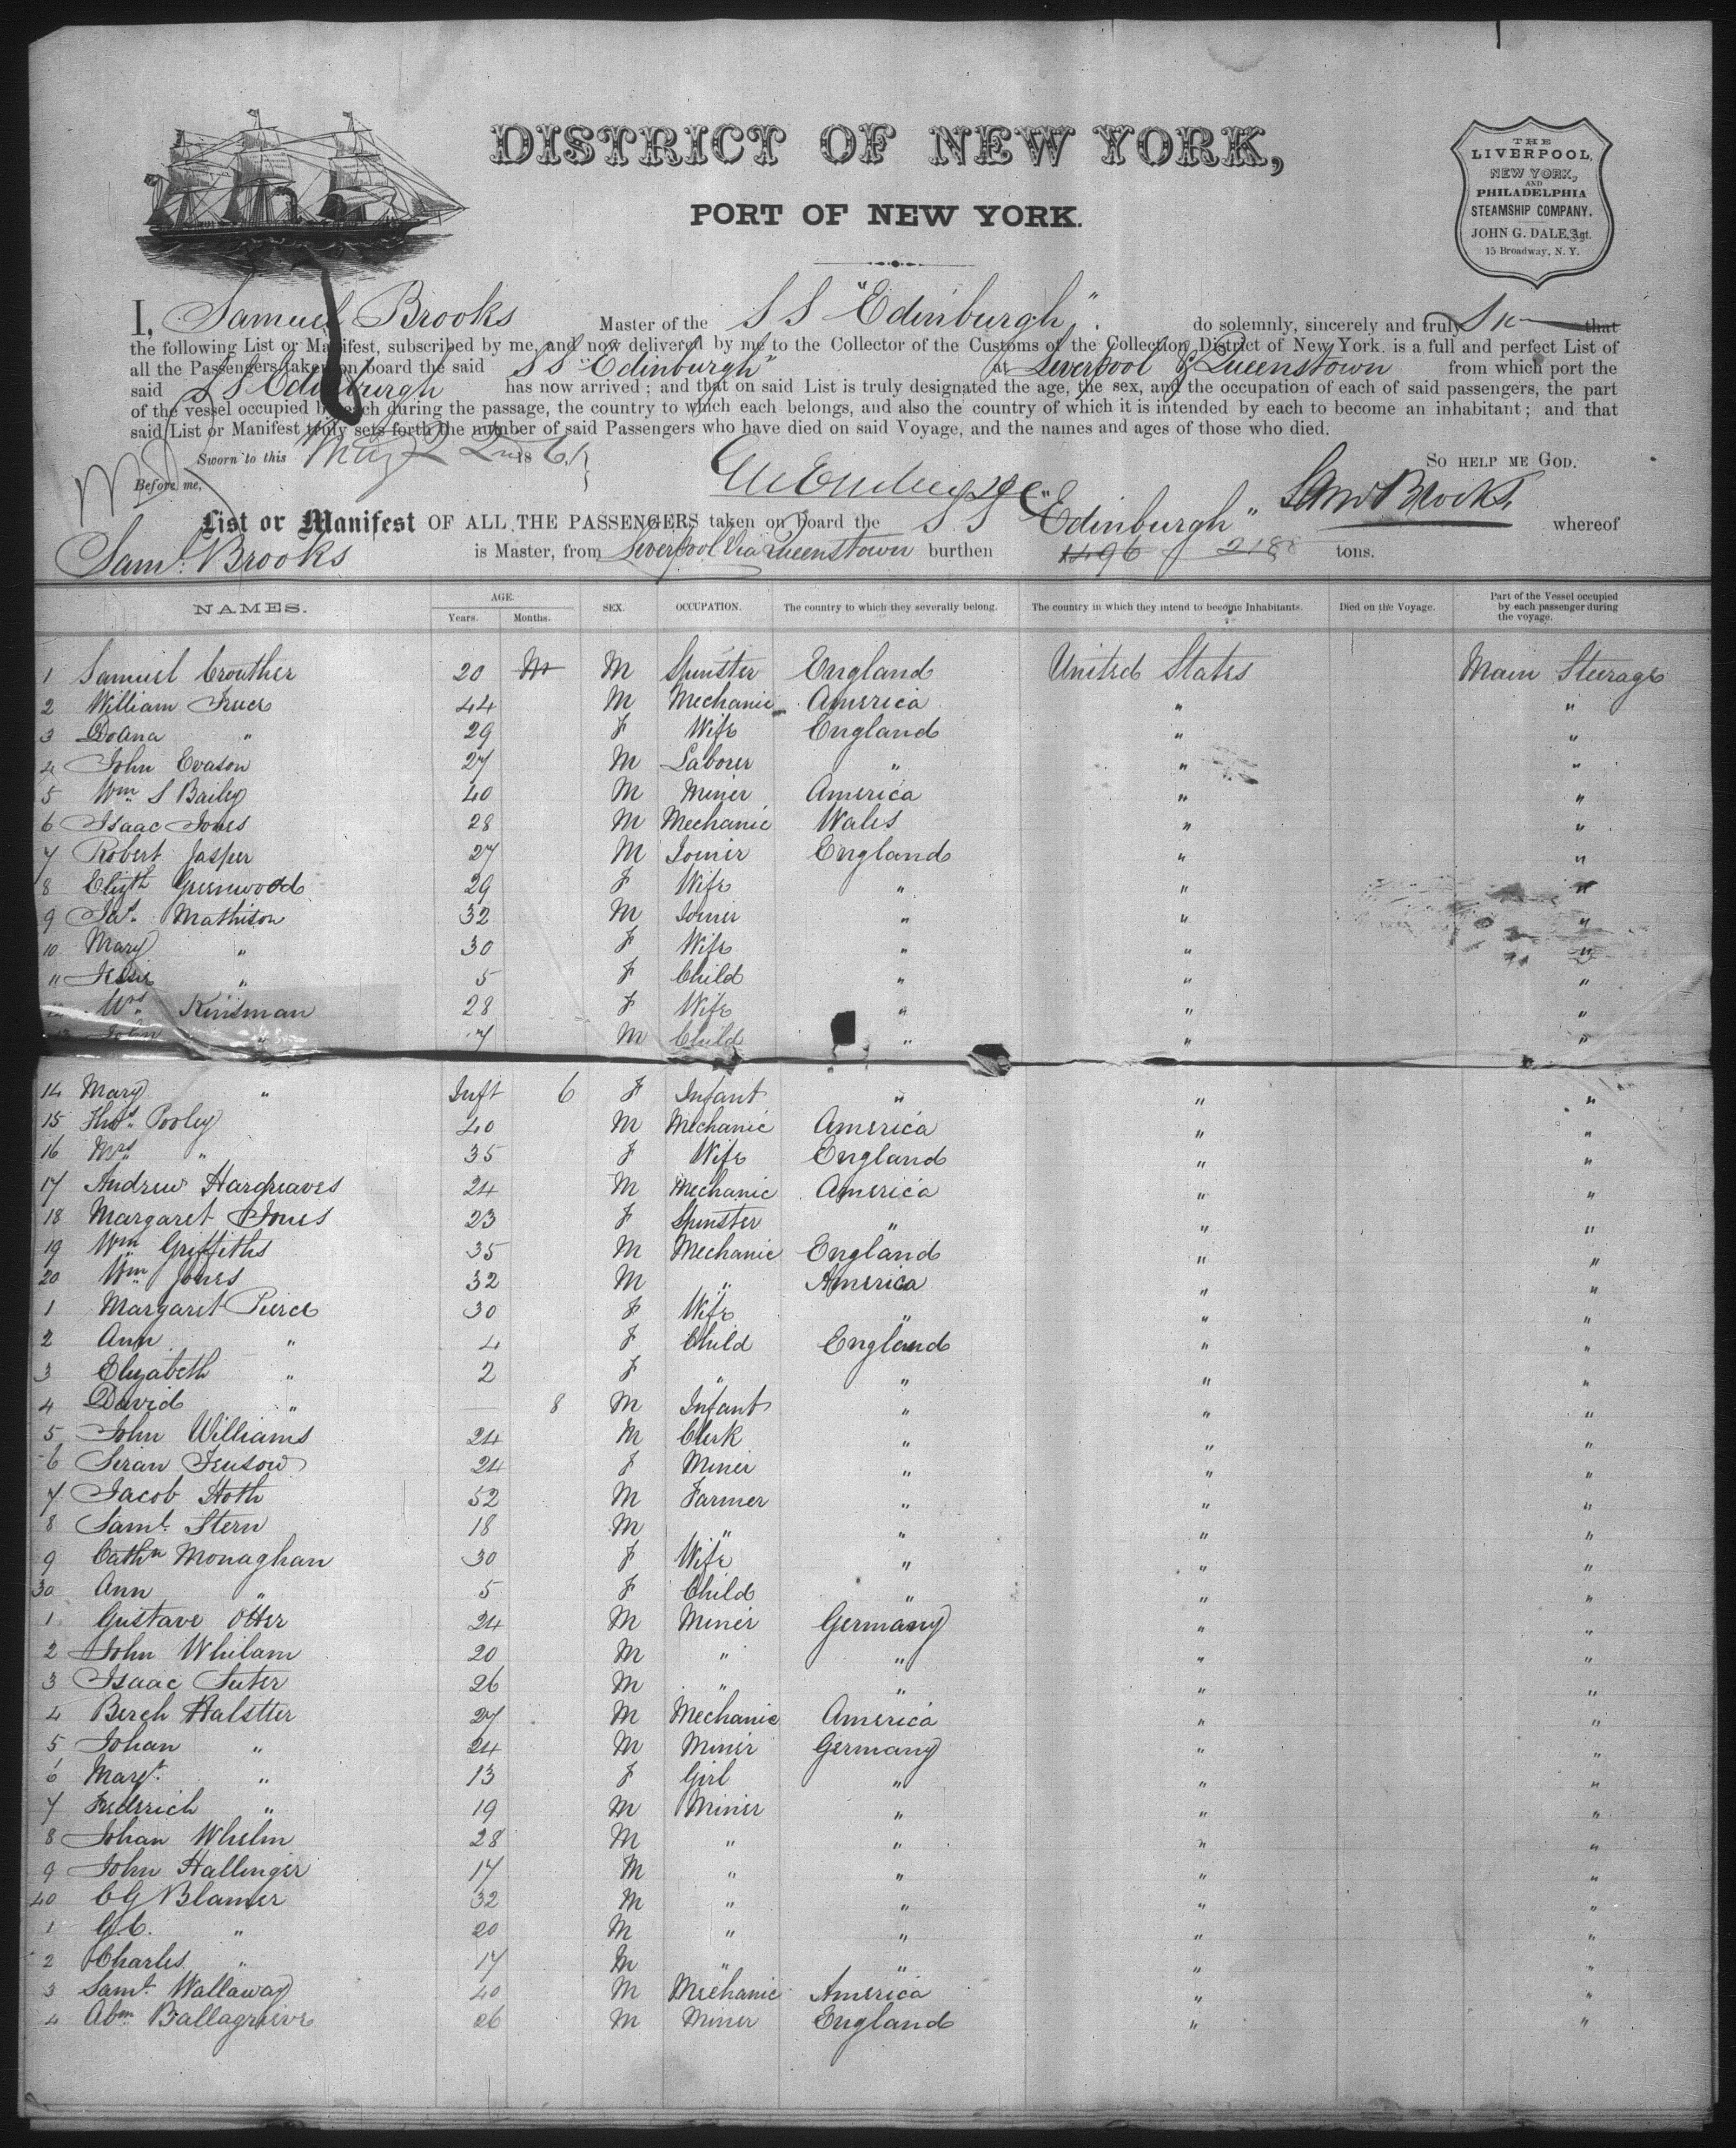 DISTRICT OF NEW YORK,
PORT OF NEW YORK.
THE
LIVERPOOL,
NEW YORK,
AND
PHILADELPHIA
STEAMSHIP COMPANY.
JOHN G. DALE, Agt.
15 Broadway, N. Y.
I, Samuel Brooks Master of the S S "Edinburgh" do solemnly, sincerely and truly that
the following List or Manifest, subscribed by me, and now delivered by me to the Collector of the Customs of the Collection District of New York. is a full and perfect List of
all the Passengers taken on board the said S S "Edinburgh" at Liverpool & Queenstown from which port the
said S S Edinburgh has now arrived; and that on said List is truly designated the age, the sex, and the occupation of each of said passengers, the part
of the vessel occupied by each during the passage, the country to which each belongs, and also the country of which it is intended by each to become an inhabitant; and that
said List or Manifest truly sets forth the number of said Passengers who have died on said Voyage, and the names and ages of those who died.
Sworn to this May 2 186
SO HELP ME GOD.
Before me,
Saml Brooks
List or Manifest OF ALL THE PASSENGERS taken on board the S S "Edinburgh" whereof
Saml. Brooks is Master, from Liverpool Via Queenstown burthen 1496 2188 tons.
NAMES. AGE. Years. Months. SEX. OCCUPATION. The country to which they severally belong. The country in which they intend to become Inhabitants. Died on the Voyage. Part of the Vessel occupied by each passenger during the voyage.
1 Samuel Crouther 20 M M Spinster England United States Main Steerage
2 William Truer 44 M Mechanic America " "
3 DoAna " 29 F Wife England " "
4 John Evason 27 M Laborer " " "
5 Wm S Bailey 40 M Miner America " "
6 Isaac Jones 28 M Mechanic Wales " "
7 Robert Jasper 27 M Joiner England " "
8 Elizth Greenwood 29 F Wife " " "
9 Jas. Mathison 32 M Joiner " " "
10 Mary " 30 F Wife " " "
11 Jessie " 5 F Child " " "
12 Mrs Kinsman 28 F Wife " " "
13 John " 7 M Child " " "
14 Mary " Inft 6 F Infant " " "
15 Thos. Pooley 40 M Mechanic America " "
16 Mrs " 35 F Wife England " "
17 Andrew Hargreaves 24 M Mechanic America " "
18 Margaret Jones 23 F Spinster " " "
19 Wm Griffiths 35 M Mechanic England " "
20 Wm Jones 32 M " America " "
1 Margaret Pierce 30 F Wife " " "
2 Ann " 4 F Child England " "
3 Elizabeth " 2 F " " " "
4 David " 8 M Infant " " "
5 John Williams 24 M Clerk " " "
6 Seran 24 F Miner " " "
7 Jacob Hoth 52 M Farmer " " "
8 Saml. Stern 18 M " " " "
9 Cathn Monaghan 30 F Wife " " "
30 Ann " 5 F Child " " "
1 Gustave Otter 24 M Miner Germany " "
2 John Whilam 20 M " " " "
3 Isaac Suter 26 M " " " "
4 Berch Halstter 27 M Mechanic America " "
5 Johan " 24 M Miner Germany " "
6 Margt. " 13 F Girl " " "
7 Frederich " 19 M Miner " " "
8 Johan Whelm 28 M " " " "
9 John Hallinger 17 M " " " "
40 C G Blamer 32 M " " " "
1 G. C. " 20 M " " " "
2 Charles " 17 M " " " "
3 Saml. Wallaway 40 M Mechanic America " "
4 Abm. Ballagrieve 26 M Miner England " "